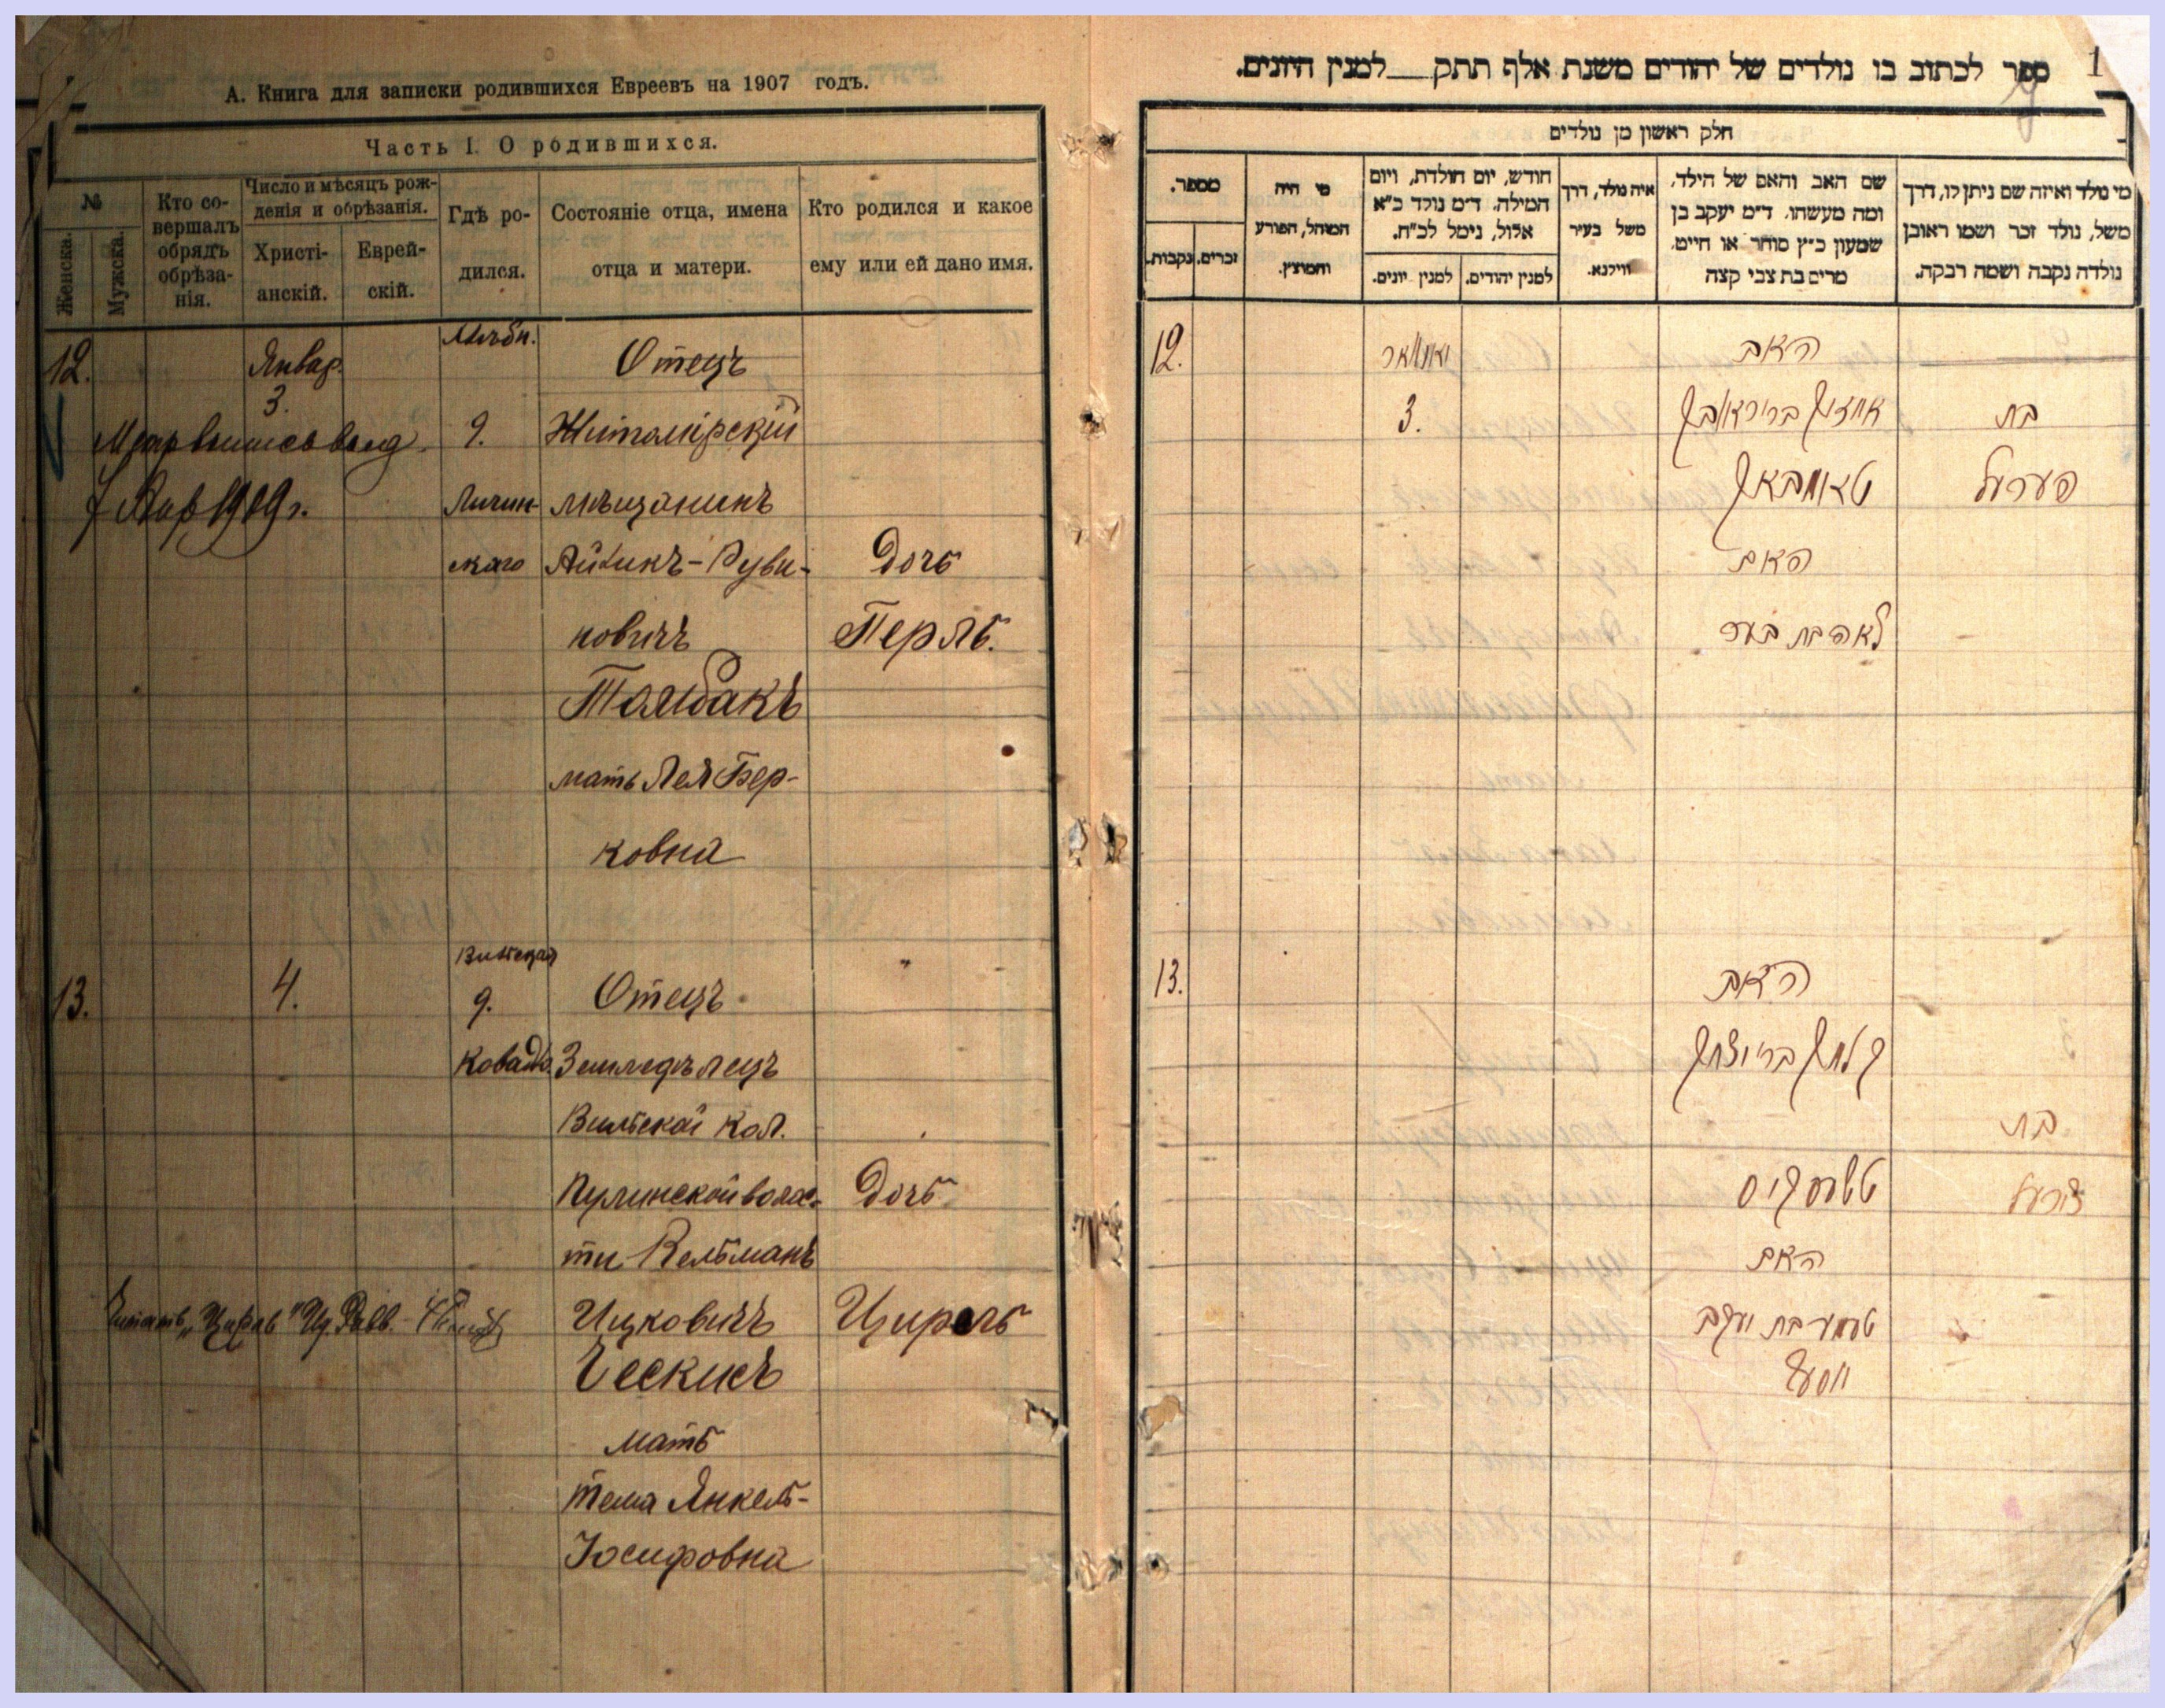 А. Книга для записки родившихся Евреевъ на 1907 годъ.
Часть I. О родившихся.
№
Женска.
Мужска.
Кто со-
вершалъ
обрядъ
обрѣза-
нія.
Число и мѣсяцъ рож-
денія и обрѣзанія.
Христі-
анскій.
Еврей-
скій.
Гдѣ ро-
дился.
Состояніе отца, имена
отца и матери.
Кто родился и какое
ему или ей дано имя.
12.
Январ.
3.
9.
Отецъ
Житомірскій
мѣщанинъ
Айзикъ-Руви-
новичъ
мать Лея Бер-
ковна
Дочь
Перль.
13.
4.
9.
Отецъ
Земледѣлецъ
Вильской кол.
Пулинской волос-
ти Кельманъ
Ицковичъ
Ческисъ
мать
Тема Янкель-
Іосифовна
Дочь
Цирель
1
ספר לכתוב בו נולדים של יהודים משנת אלף תתק__למנין היונים.
חלק ראשון מן נולדים
מספר.
נקבות.
זכרים.
מי היה
המוהל, הפורע
והמוצץ.
חודש, יום הולדת, ויום
המילה. ד״מ נולד כ״א
אלול, נימל לכ״ח.
למנין יונים.
למנין יהודים.
איה נולד, דרך
משל בעיר
ווילנא.
שם האב והאם של הילד,
ומה מעשהו. ד״מ יעקב בן
שמעון כ״ץ סוחר או חייט.
מרים בת צבי קצה
מי נולד ואיזה שם ניתן לו, דרך
משל, נולד זכר ושמו ראובן
נולדה נקבה ושמה רבקה.
12.
יאנואר
3.
האב
אייזיק בר ראובן
טאמבאק
האם
לאה בת בער
בת
פערעל
13.
האב
קלמן בר יצחק
טשעסקיס
האם
טעמע בת יעקב
יוסעף
בת
צירעל